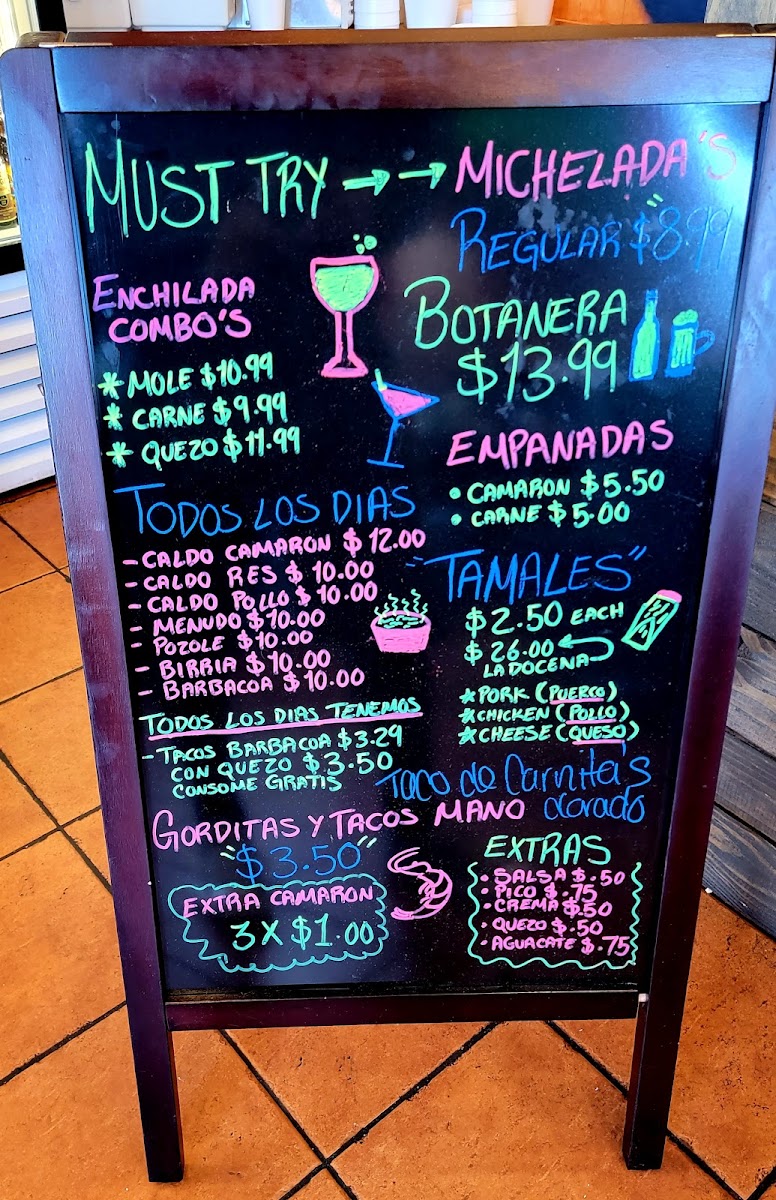 MUST TRY →→ MICHELADA'S
REGULAR $8.99
BOTANERA
$13.99
ENCHILADA
COMBO'S
* MOLE $10.99
* CARNE $9.99
* QUEZO $11.99
EMPANADAS
• CAMARON $5.50
• CARNE $5.00
TODOS LOS DIAS
- CALDO CAMARON $12.00
- CALDO RES $10.00
- CALDO POLLO $10.00
- MENUDO $10.00
- POZOLE $10.00
- BIRRIA $10.00
- BARBACOA $10.00
"TAMALES"
$2.50 EACH
$26.00
LA DOCENA
* PORK (PUERCO)
* CHICKEN (POLLO)
* CHEESE (QUESO)
TODOS LOS DIAS TENEMOS
- TACOS BARBACOA $3.29
CON QUEZO $3.50
CONSOME GRATIS
Taco de Carnita's
dorado
GORDITAS Y TACOS MANO
"$3.50"
EXTRA CAMARON
3 X $1.00
EXTRAS
• SALSA $.50
• PICO $.75
• CREMA $.50
• QUEZO $.50
• AGUACATE $.75